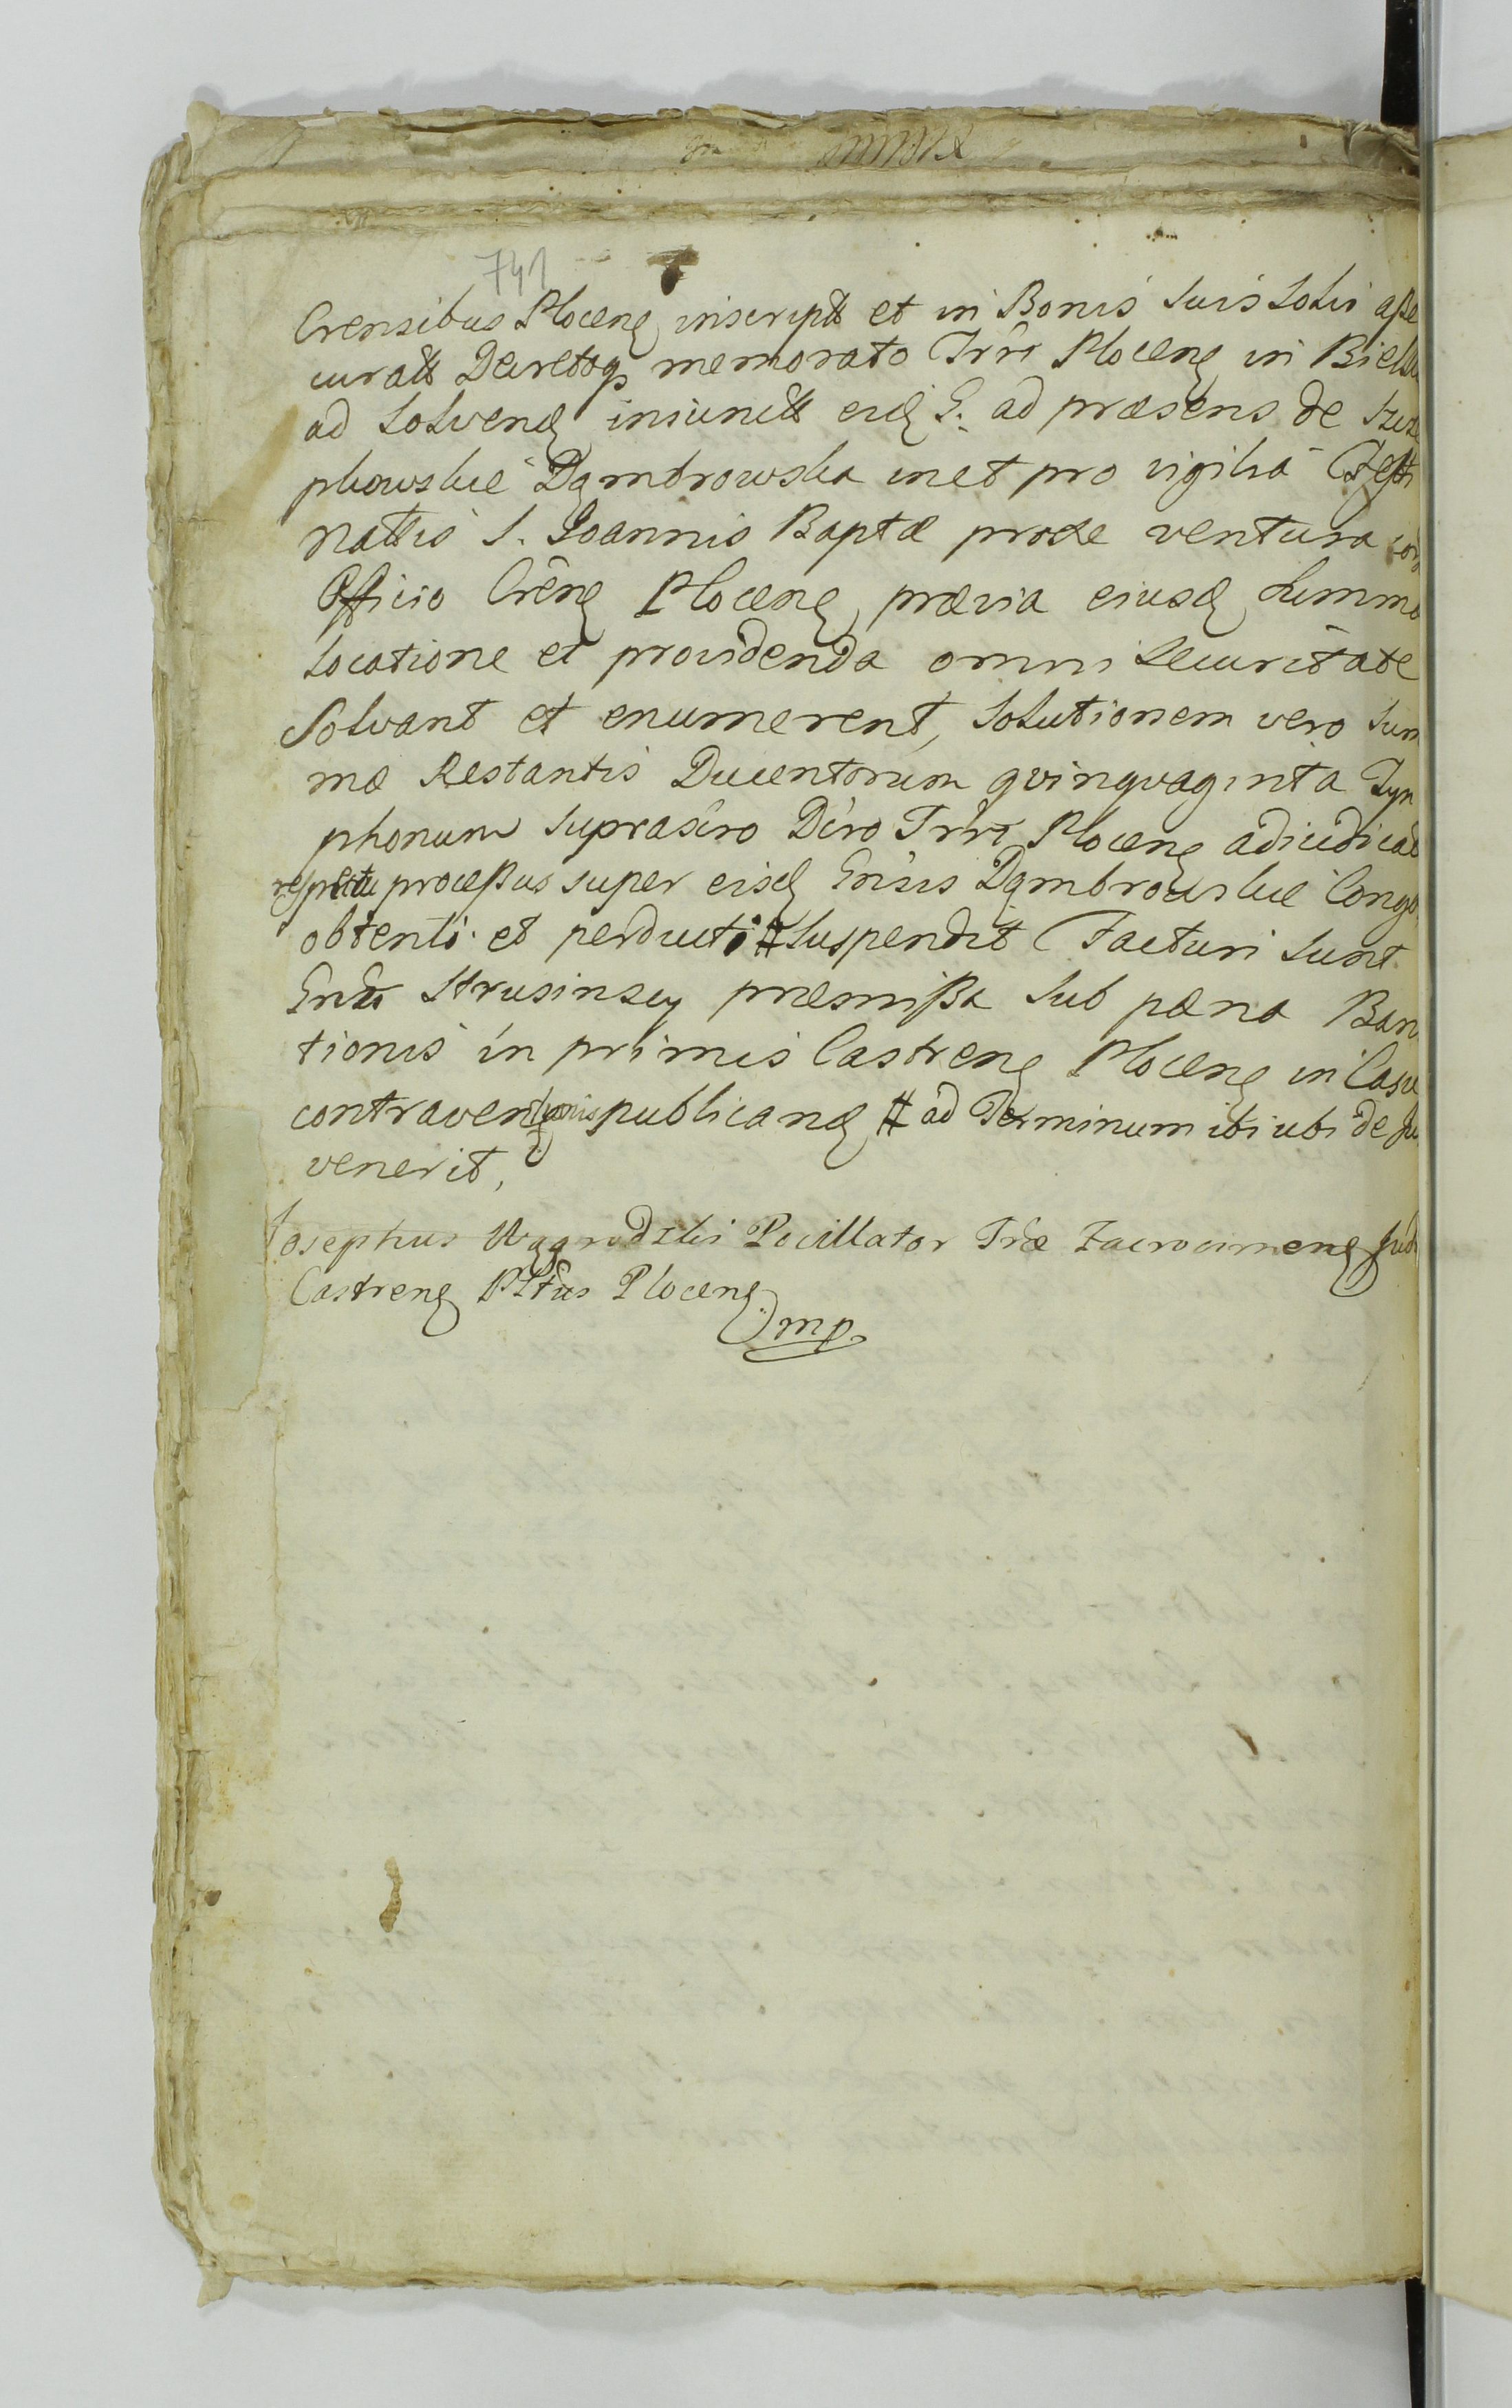 741
Crensibus Plocen inscriptt et in Bonis suis Solis asse
curatt Decretoq memorato Trri Plocen in Biels
ad Solvend iniunctt eid G. ad præsens de
pkowskie Dąmbrowska inet pro vigilia Festi
nattis S. Joannis Baptæ proxe ventura cor
Officio Cren Plocen prævia eiusd Summæ
Locatione et providenda omni securitate
Solvant et enumerent, Solutionem vero Sum
mæ Restantis Ducentorum qvinqvaginta Tyn
phonum suprascro Dcro Trri Plocen adiudicat
respectu processus super eisd Gnsis Dąmbrowskie
obtenti et perducti # Suspendit Facturi sunt
Gndi Strusinscy præmissa sub pæna Ban
tionis in primis Castren Plocen in Casu
contraventionis publicand # ad Terminum ibi ubi de Ju
venerit,
Josephus Wągrodzki Pocillator Træ Zacrocimen Jud
Castren Pttus Plocen
mp.